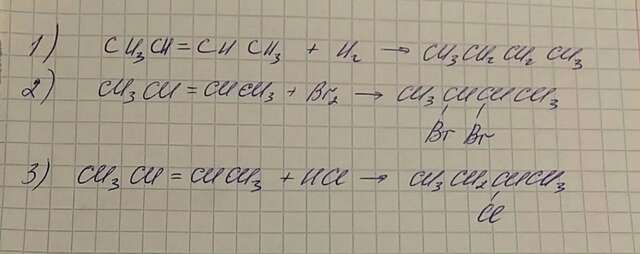 1) CH₃CH=CHCH₃ + H₂ → CH₃CH₂CH₂CH₃
2) CH₃CH=CHCH₃ + Br₂ → CH₃CHCHCH₃
Br Br
3) CH₃CH=CHCH₃ + HCl → CH₃CH₂CHCH₃
Cl